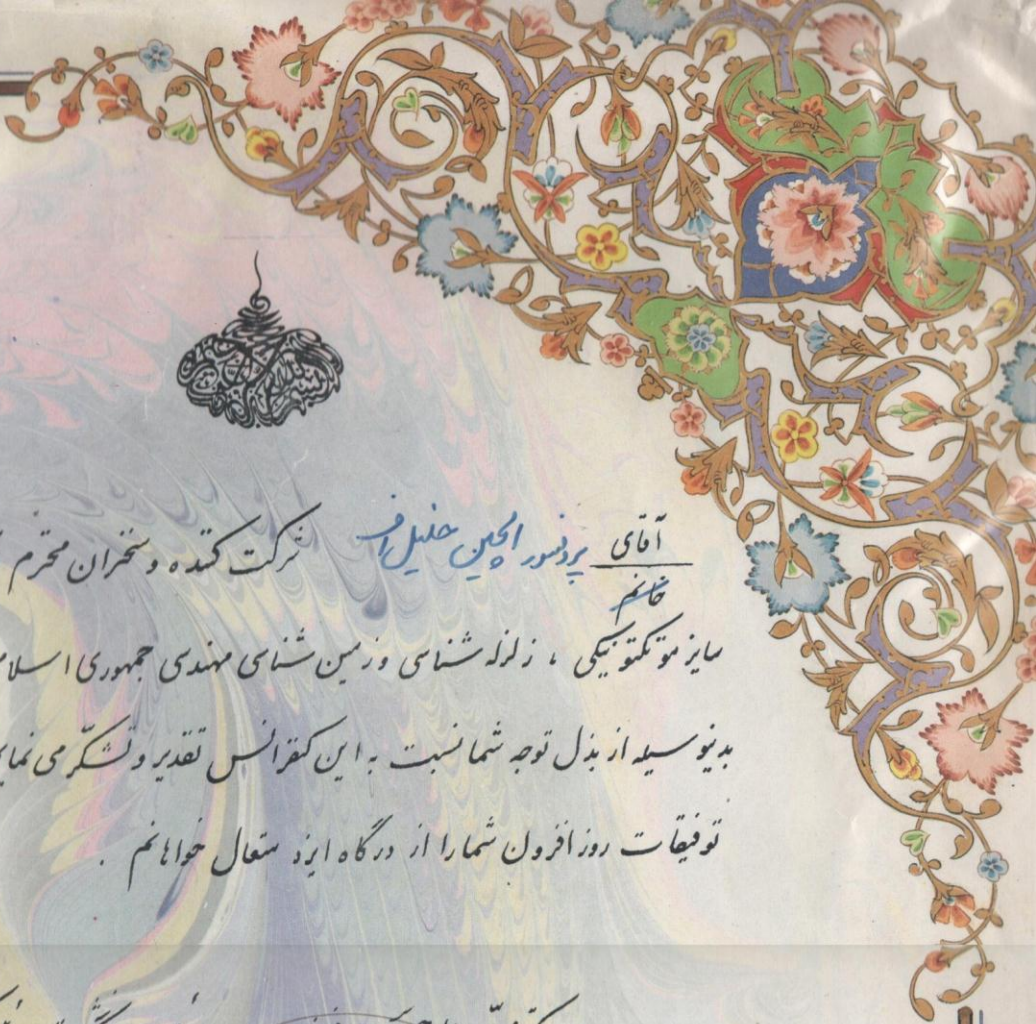 آقای پروفسور الچین خلیل اف شرکت کننده و سخنران محترم
خانم
سایزموتکتونیکی ، زلزله شناسی و زمین شناسی مهندسی جمهوری اسلا
بدینوسیله از بذل توجه شما نسبت به این کنفرانس تقدیر و تشکّر می نمای
توفیقات روزافزون شما را از درگاه ایزد متعال خواهانم .